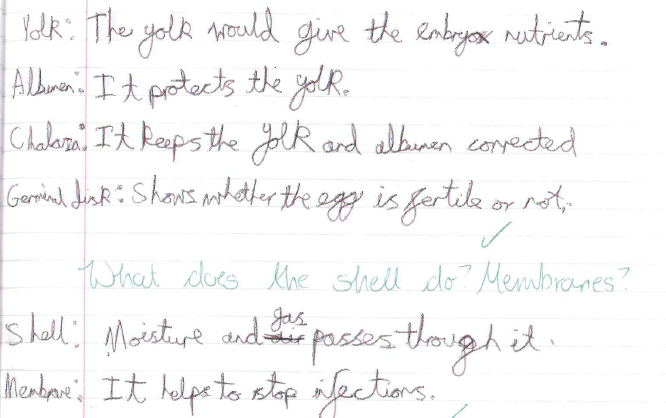 Yolk: The yolk would give the embryo nutrients.
Albumen: It protects the yolk.
Chalaza: It keeps the yolk and albumen connected
Germinal disk: Shows whether the egg is fertile or not.
What does the shell do? Membranes?
Shell: Moisture and gas passes through it.
Membrane: It helps to stop infections.